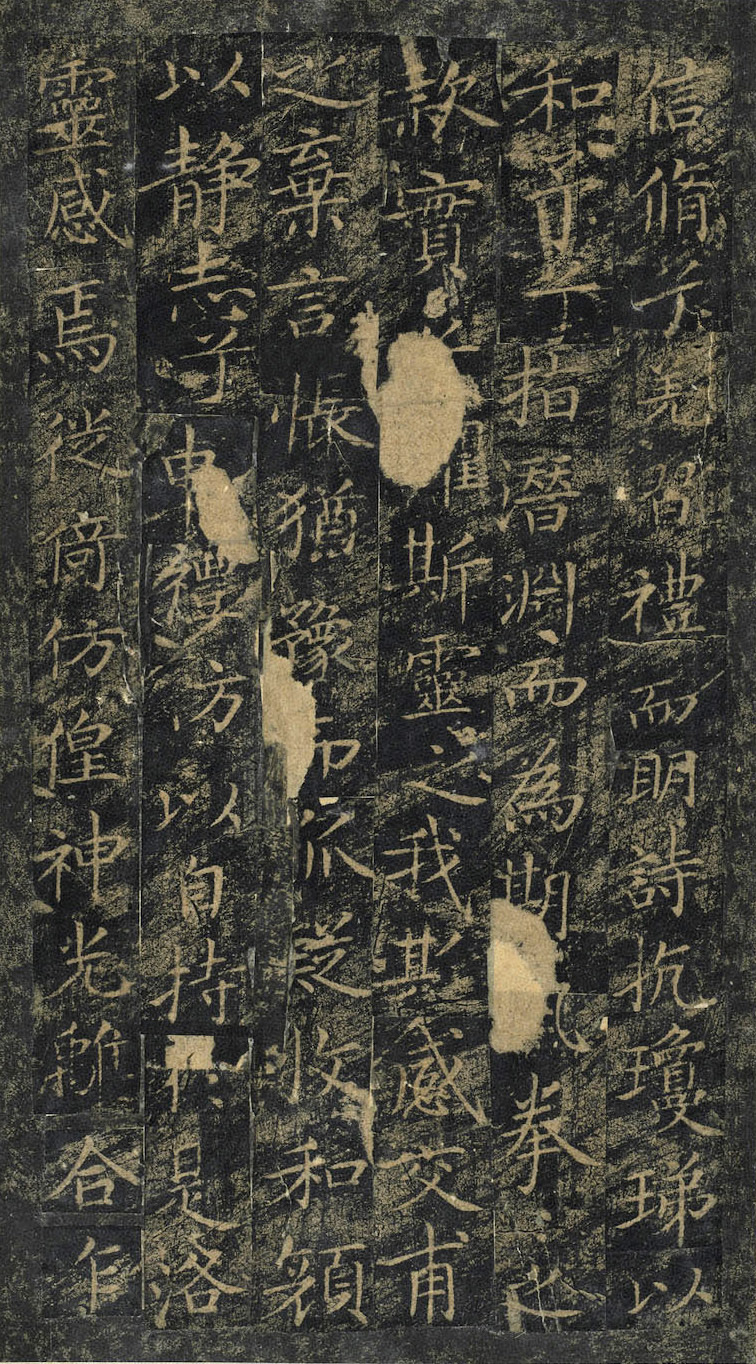 信脩兮羌習禮而明詩抗瓊珶以
和予兮指潛淵而為期拳之
款實斯靈之我欺感交甫
之棄言悵猶豫而狐疑收和顔
以静志兮申禮防以自持於是洛
靈感焉徙倚仿偟神光離合乍